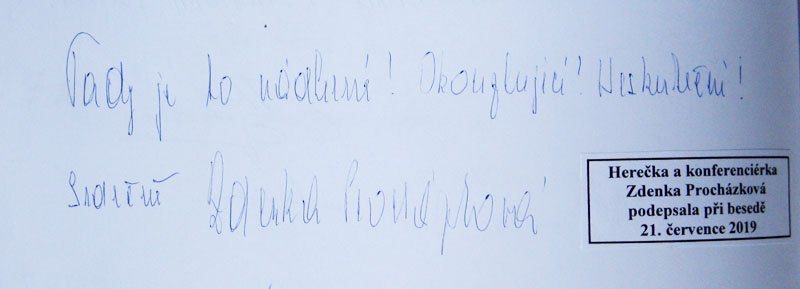 Tady je to nádherné! Okouzlující! Neskutečné!
srdečně Zdenka Procházková
Herečka a konferenciérka
Zdenka Procházková
podepsala při besedě
21. července 2019